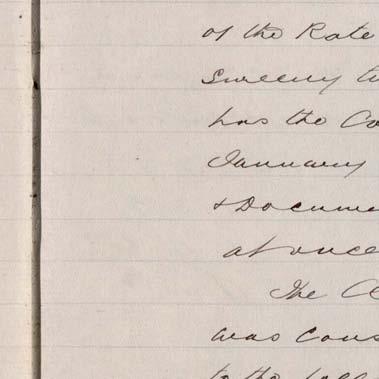 of the Rate
Sweeny
has the Co
January
& Docume
at once
The
was cons
to the foll